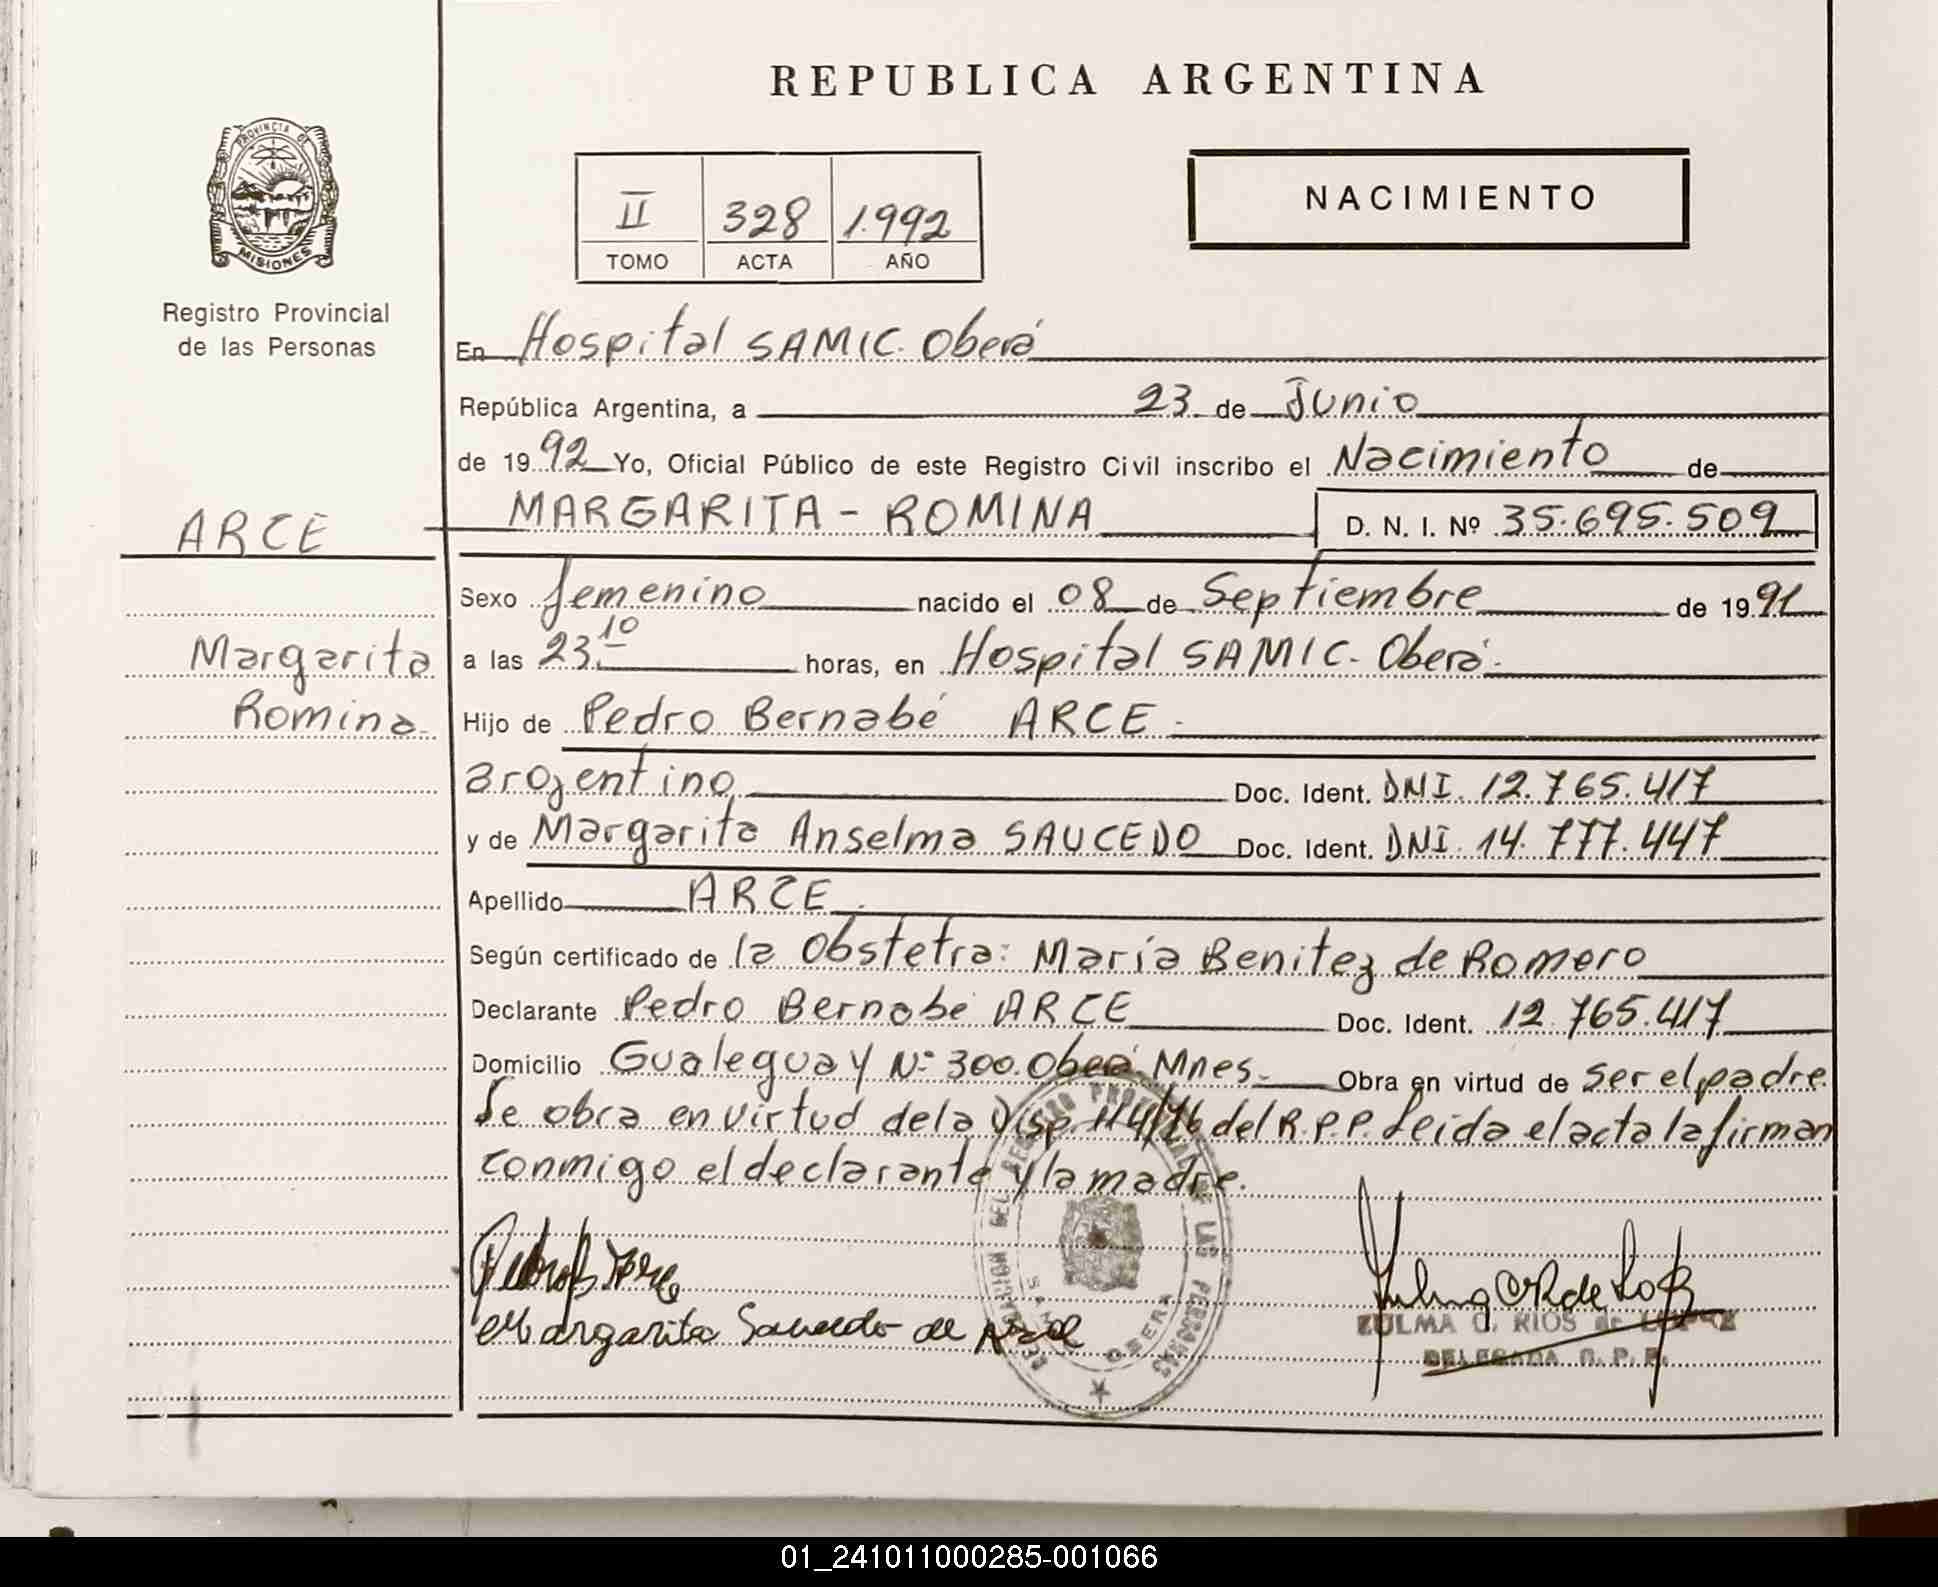 REPUBLICA ARGENTINA
PROVINCIA DE
MISIONES
Registro Provincial
de las Personas
II 328 1.992
TOMO ACTA AÑO
NACIMIENTO
En Hospital SAMIC. Oberá
República Argentina, a 23 de Junio
de 1992 Yo, Oficial Público de este Registro Civil inscribo el Nacimiento de
ARCE
MARGARITA - ROMINA D. N. I. Nº 35.695.509
Sexo femenino nacido el 08 de Septiembre de 1991
Margarita
Romina
a las 23.10 horas, en Hospital SAMIC. Oberá.
Hijo de Pedro Bernabé ARCE
argentino Doc. Ident. DNI. 12.765.417
y de Margarita Anselma SAUCEDO Doc. Ident. DNI. 14.777.447
Apellido ARCE
Según certificado de la Obstetra: María Benitez de Romero
Declarante Pedro Bernabé ARCE Doc. Ident. 12.765.417
Domicilio Gualeguay Nº 300. Oberá Mnes. Obra en virtud de ser el padre
Se obra en virtud de la Disp. 114/76 del R.P.P. Leida el acta la firman
conmigo el declarante y la madre.
Pedro B Arce
Margarita Saucedo de Arce
DELEGACION DEL REGISTRO PROVINCIAL DE LAS PERSONAS
OBERA
ZULMA C. RIOS de LOPEZ
DELEGADA R. P. P.
01_241011000285-001066